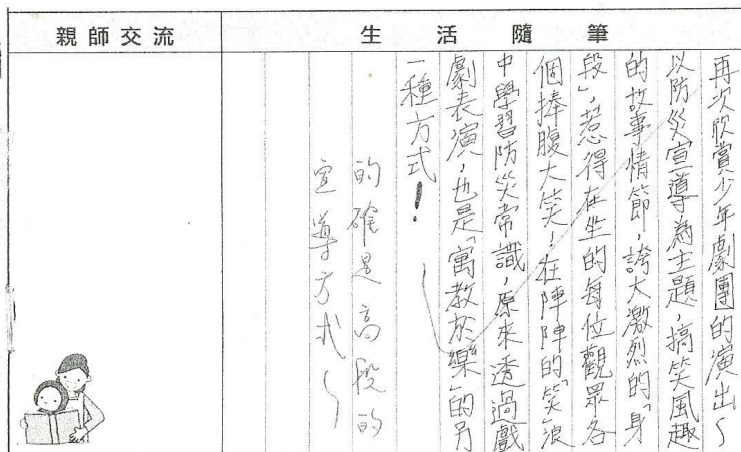 親師交流
生活隨筆
再次欣賞少年劇團的演出~
以防災宣導為主題,搞笑風趣
的故事情節,誇大激烈的「身
段」,惹得在坐的每位觀眾各
個捧腹大笑!在陣陣的「笑」浪
中學習防災常識,原來透過戲
劇表演,也是「寓教於樂」的另
一種方式!
的確是高段的
宣導方式~